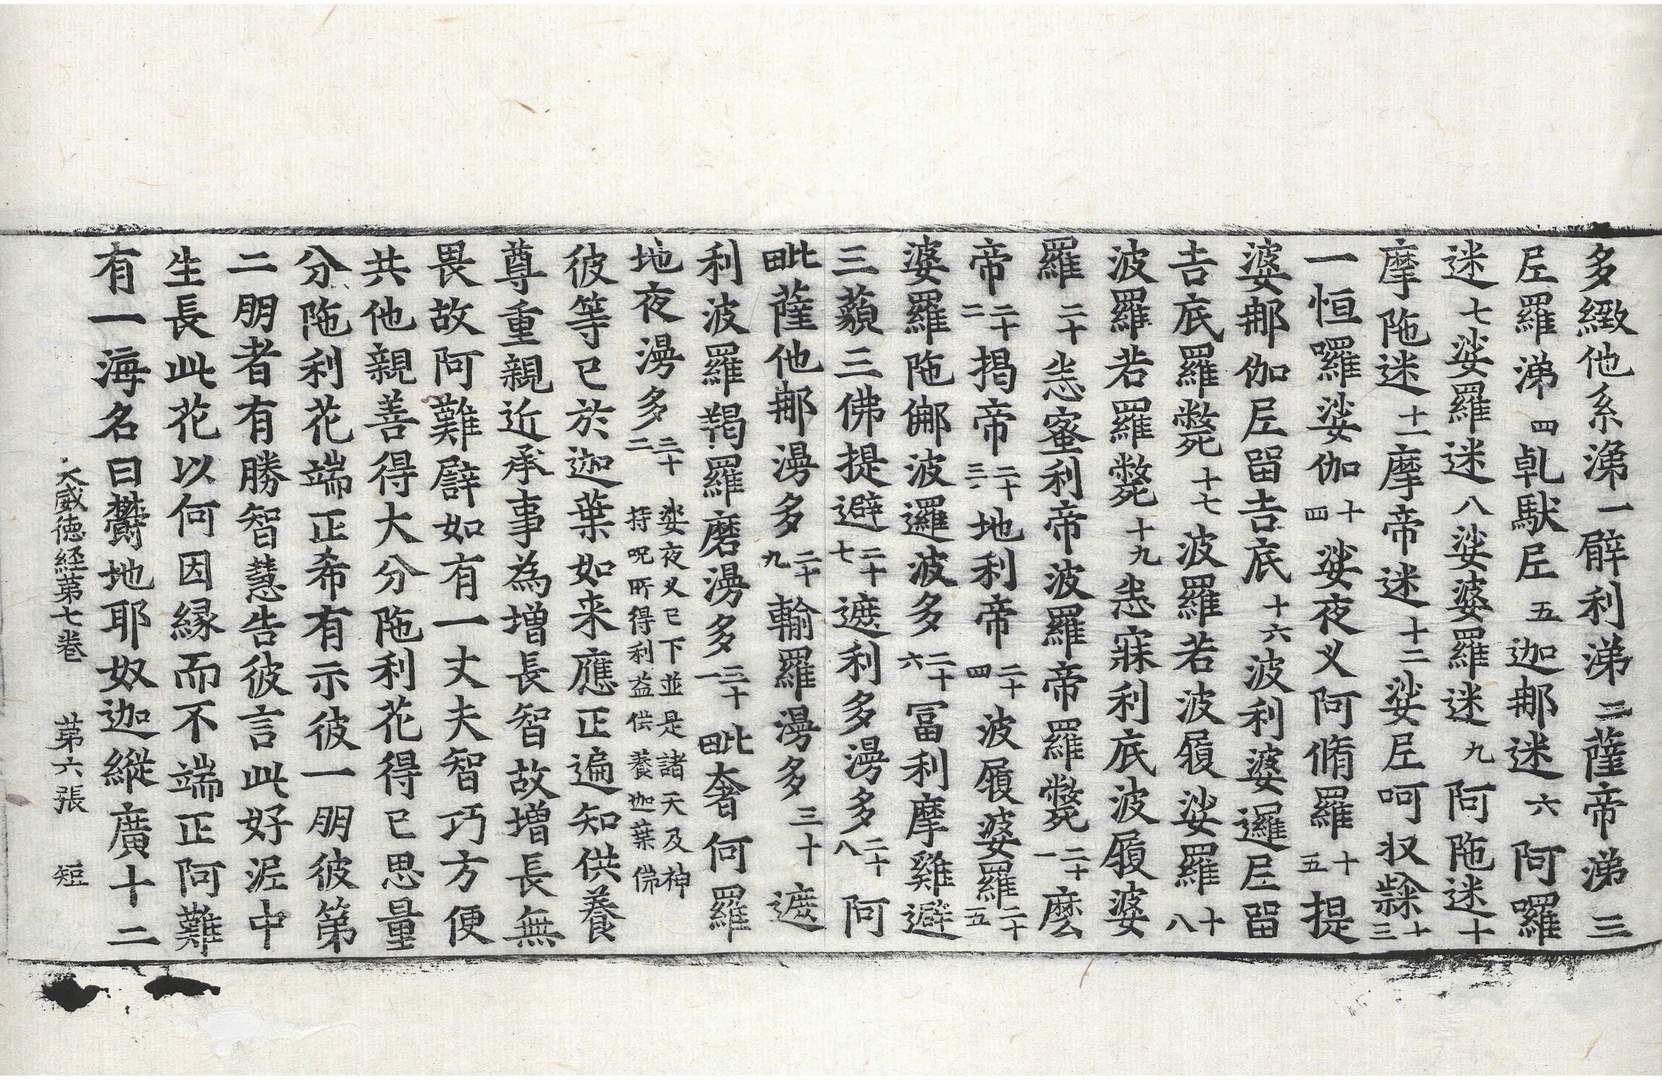 多緻他系涕一辟利涕二薩帝涕三
𡰱羅涕四乹馱𡰱五迦那迷六阿囉
迷七娑羅迷八娑婆羅迷九阿陁迷十
摩陁迷十一摩帝迷十二娑𡰱呵扠𨽻十三
一恒囉娑伽十四娑夜义阿脩羅十五提
婆那伽𡰱留吉底十六波利婆邏𡰱留
吉底羅斃十七波羅若波履娑羅十八
波羅若羅斃十九恙寐利底波履婆
羅二十恙蜜利帝波羅帝羅斃二十一麼
帝二十二揭帝二十三地利帝二十四波履婆羅二十五
婆羅陁㑚波邏波多二十六冨利摩雞避
三藐三佛提避二十七遮利多漫多二十八阿
毗薩他那漫多二十九輸羅漫多三十遮
利波羅羯羅磨漫多三十一毗奢何羅
地夜漫多三十二娑夜义已下並是諸天及神持呪所得利益供養迦葉佛
彼等已於迦葉如来應正遍知供養
尊重親近承事為增長智故增長無
畏故阿難譬如有一丈夫智巧方便
共他親善得大分陁利花得已思量
分陁利花端正希有示彼一朋彼第
二朋者有勝智慧告彼言此好泥中
生長此花以何因縁而不端正阿難
有一海名曰欝地耶奴迦縱廣十二
大威德経第七卷　第六張　短